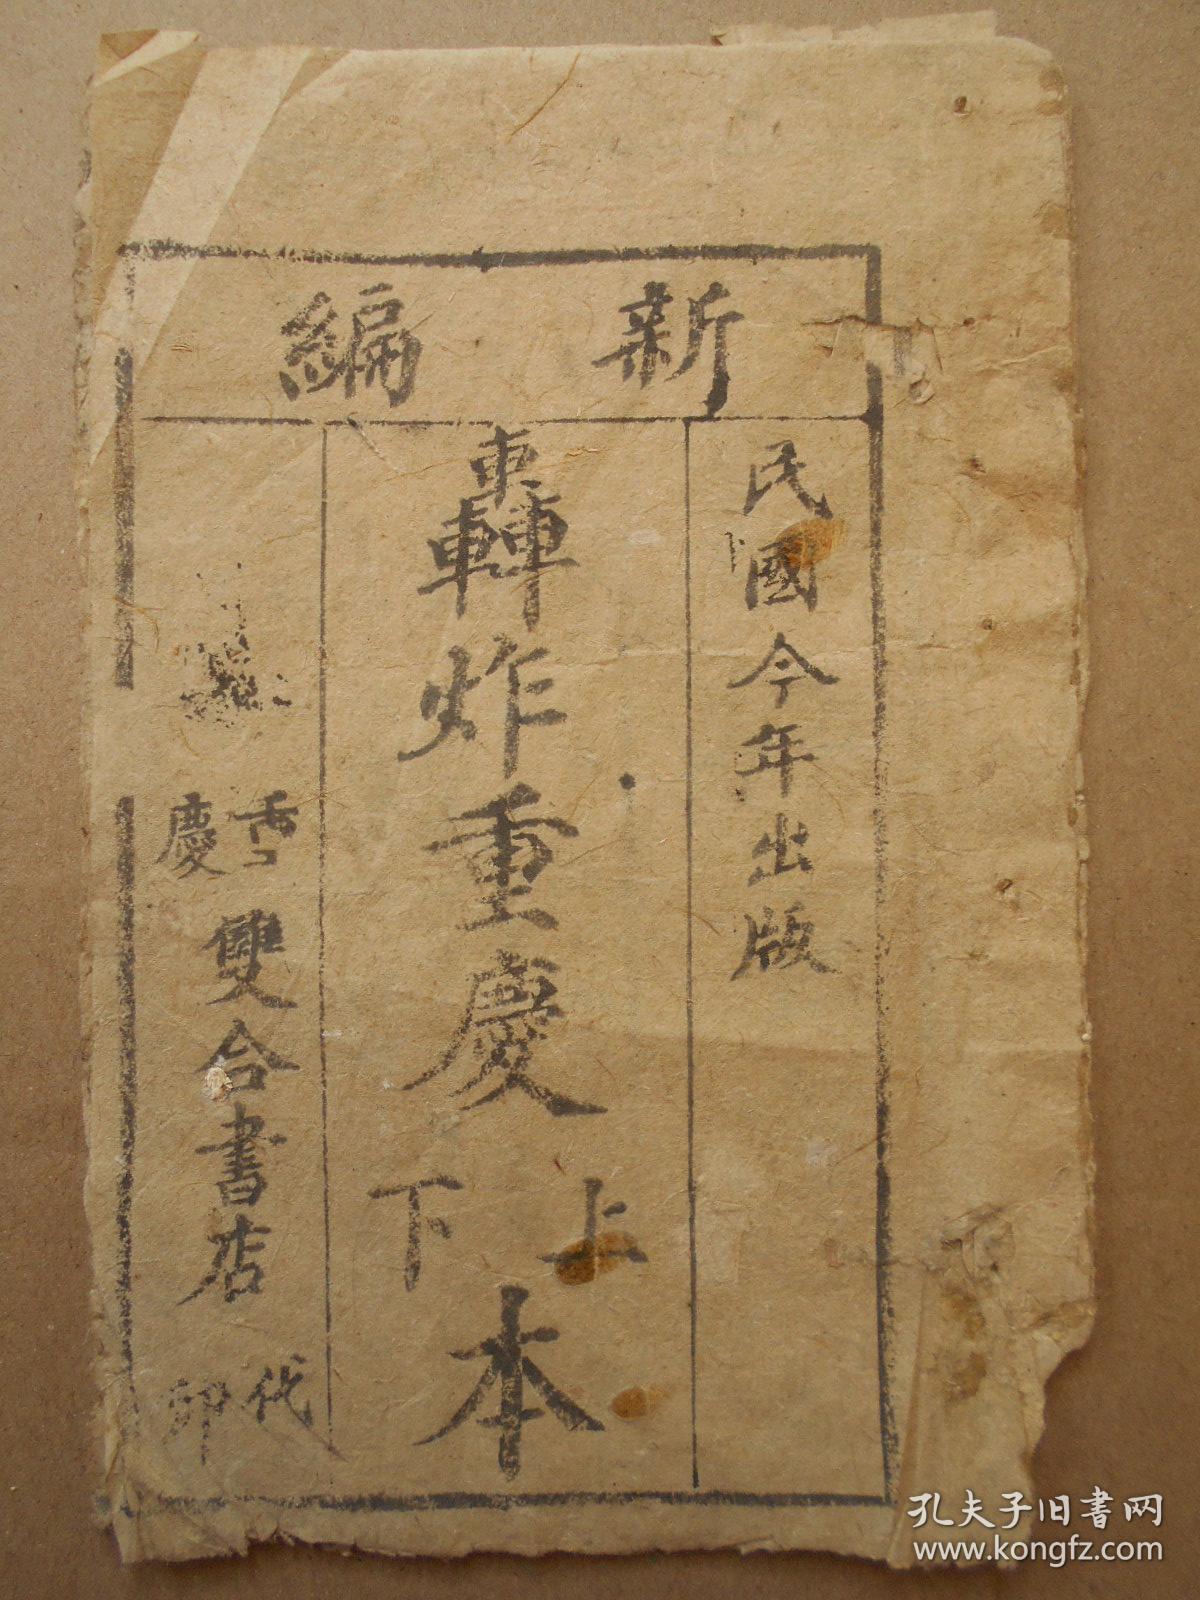 新編
民國今年出版
轟炸重慶
上下
本
慶
雙合書店
代印
孔夫子旧書网
www.kongfz.com